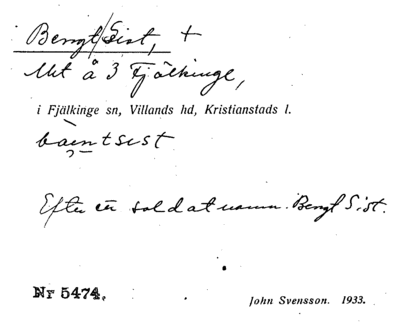 Bengt/Sist, +
Utt å 3 Fjälkinge,
i Fjälkinge sn, Villands hd, Kristianstads l.
bäintsist
Efter en soldat namn. Bengt Sist.
Nr 5474.
John Svensson. 1933.